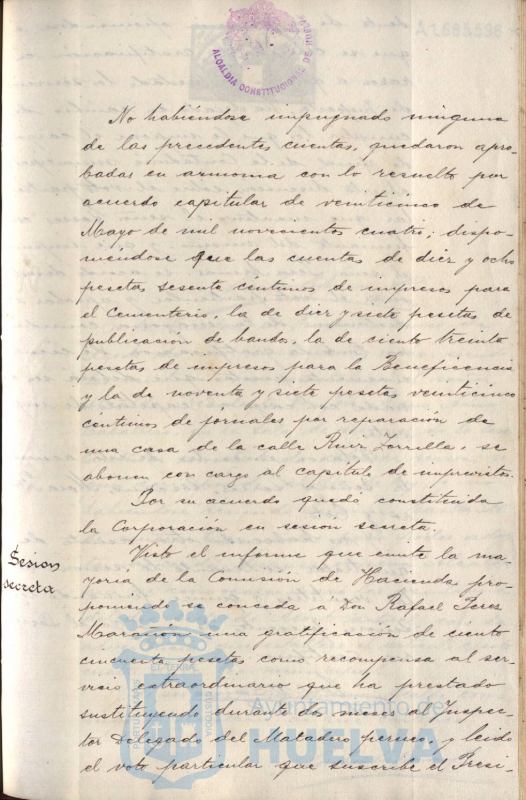 A1.665.596
ALCALDIA CONSTITUCIONAL DE HUELVA
No habiéndose impugnado ninguna
de las precedentes cuentas, quedaron apro-
badas en armonia con lo resuelto por
acuerdo capitular de veinticinco de
Mayo de mil novecientos cuatro; dispo-
niéndose que las cuentas de diez y ocho
pesetas sesenta céntimos de impresos para
el Cementerio, la de diez y siete pesetas de
publicación de bandos, la de ciento treinta
pesetas de impresos para la Beneficencia
y la de noventa y siete pesetas veinticinco
centimos de jornales por reparación de
una casa de la calle Ruiz Zorrilla, se
abonen con cargo al capítulo de imprevistos.
Por su acuerdo quedó constituida
la Corporación en sesion secreta.
Sesion
secreta
Visto el informe que emite la ma-
yoria de la Comisión de Hacienda pro-
poniendo se conceda á Don Rafael Perez
Marañón una gratificación de ciento
cincuenta pesetas como recompensa al ser-
vicio extraordinario que ha prestado
sustituyendo durante dos meses al Inspec-
tor Delegado del Matadero pericia y leido
el voto particular que suscribe el Presi-
Ayuntamiento de
HUELVA